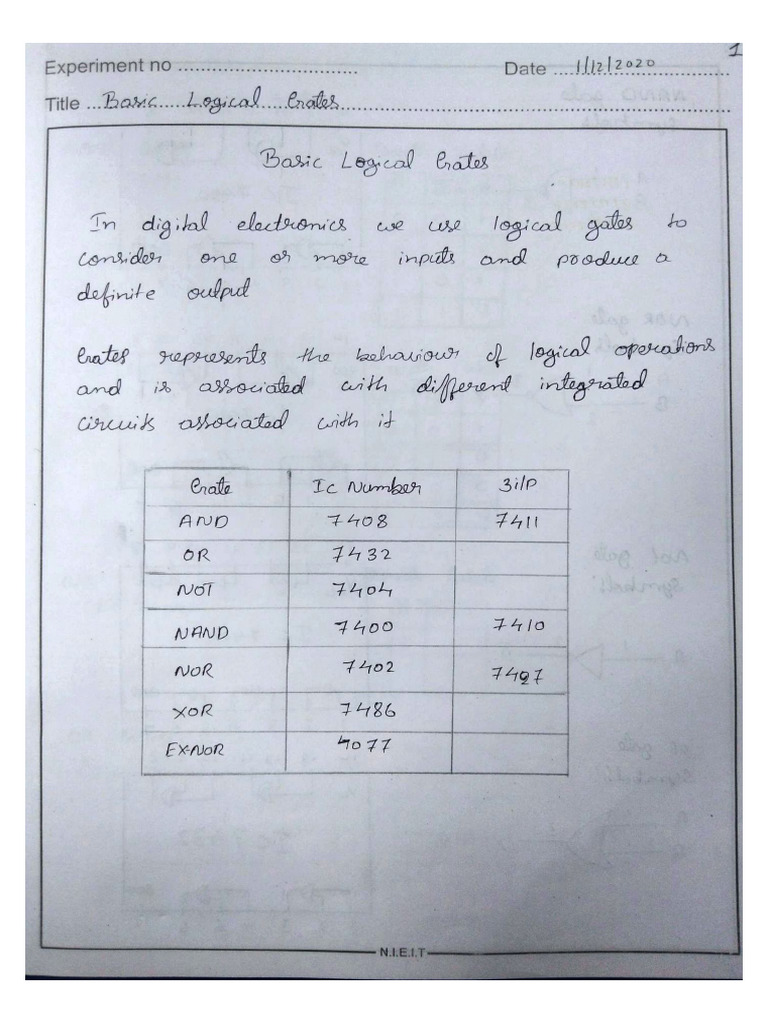 1
Experiment no ................................
Date ....1/12/2020..............
Title ...Basic.....Logical....Gates...........................................................................
Basic Logical Gates
In digital electronics we use logical gates to
consider one or more inputs and produce a
definite output
Gates represents the behaviour of logical operations
and is associated with different integrated
circuits associated with it
Gate Ic Number 3i/P
AND 7408 7411
OR 7432
NOT 7404
NAND 7400 7410
NOR 7402 7427
XOR 7486
EX-NOR 4077
N.I.E.I.T